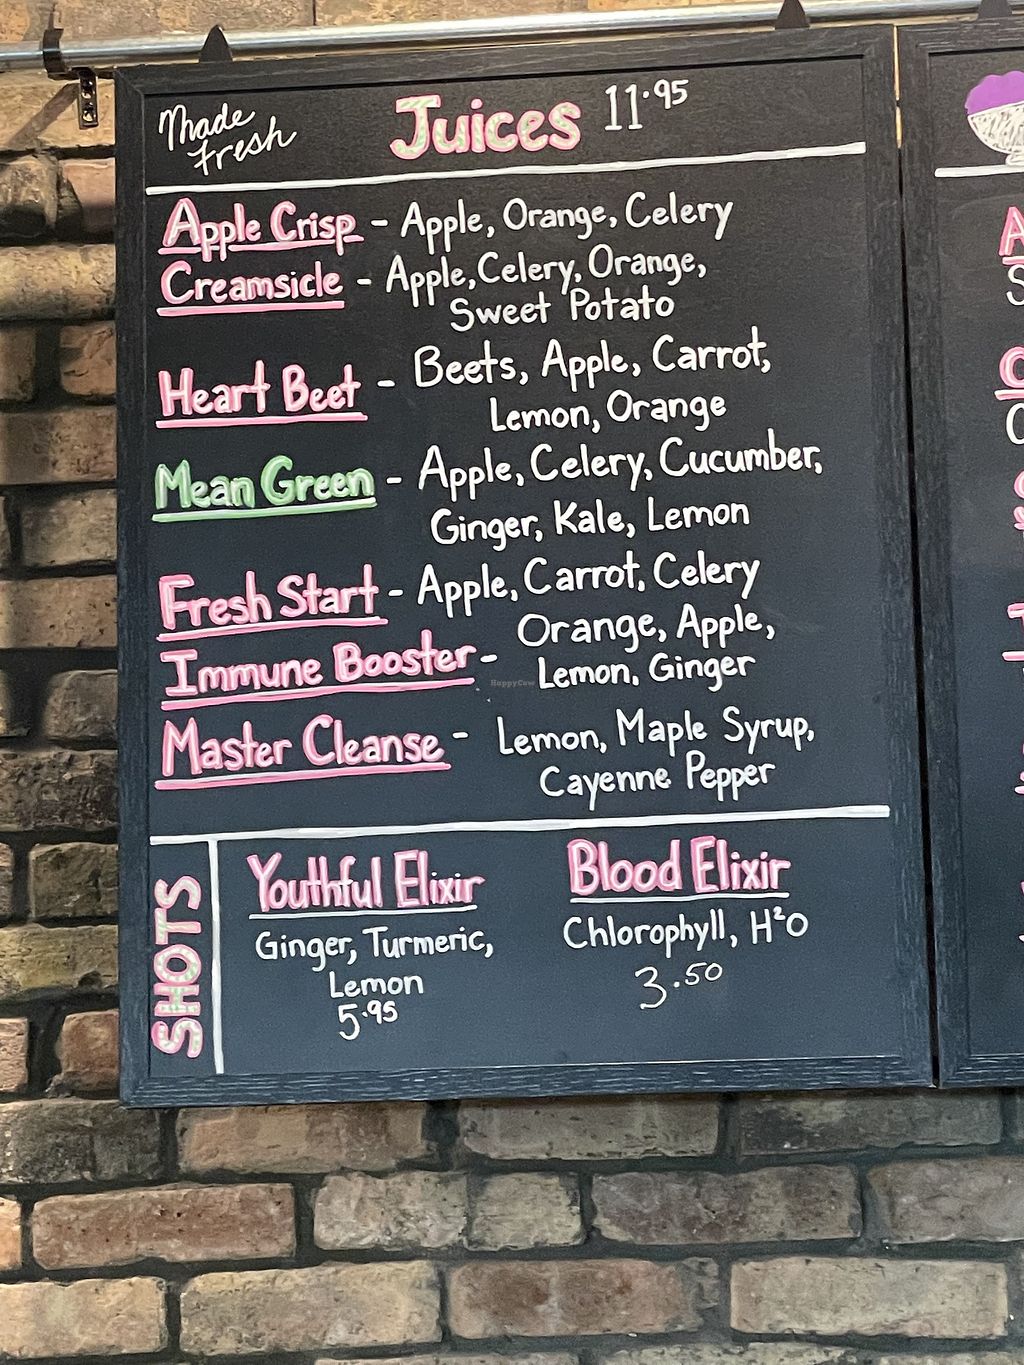 Made Fresh
Juices 11.95
Apple Crisp - Apple, Orange, Celery
Creamsicle - Apple, Celery, Orange,
Sweet Potato
Heart Beet - Beets, Apple, Carrot,
Lemon, Orange
Mean Green - Apple, Celery, Cucumber,
Ginger, Kale, Lemon
Fresh Start - Apple, Carrot, Celery
Immune Booster - Orange, Apple,
Lemon, Ginger
HappyCow
Master Cleanse - Lemon, Maple Syrup,
Cayenne Pepper
SHOTS
Youthful Elixir
Ginger, Turmeric,
Lemon
5.95
Blood Elixir
Chlorophyll, H²O
3.50